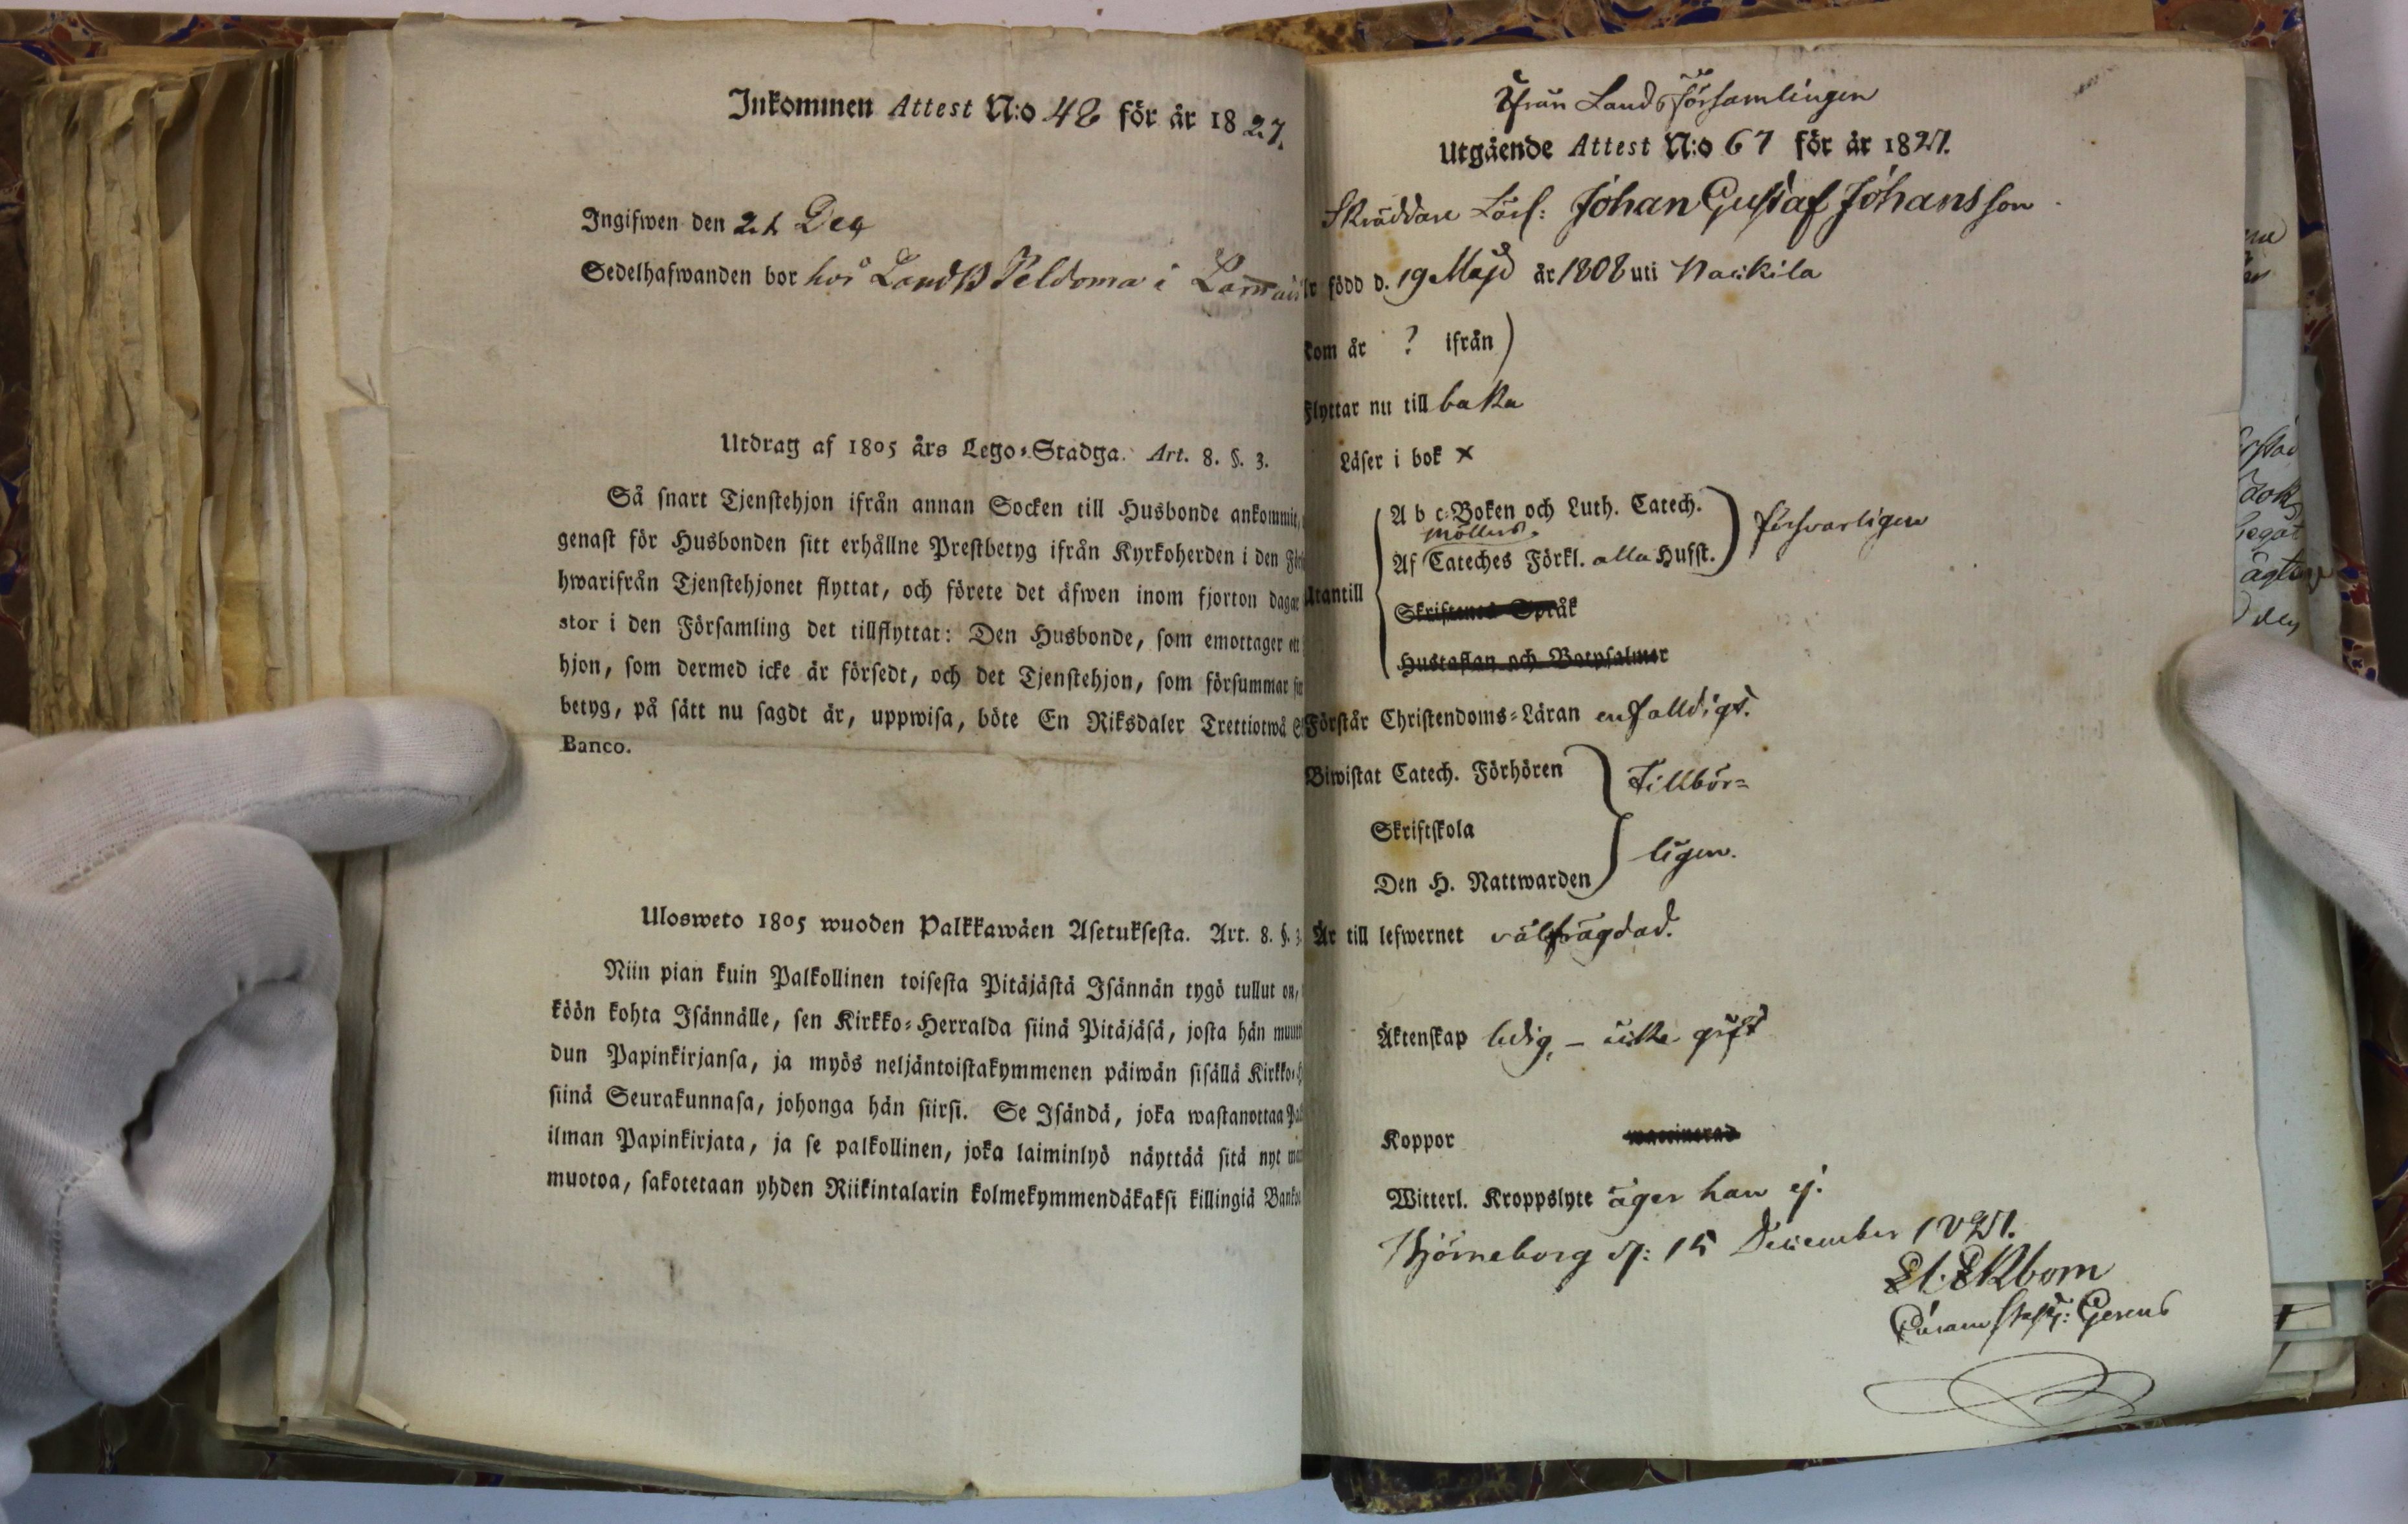 Inkommen Attest N:o 48 för år 1827.
Ingifwen den 21 Dec
Sedelhafwanden bor hos Landtb Peldoma i
Utdrag af 1805 års Lego-Stadga. Art. 8. §. 3.
Så snart Tjenstehjon ifrån annan Socken till Husbonde ankommit,
genast för Husbonden sitt erhållne Prestbetyg ifrån Kyrkoherden i den
hwarifrån Tjenstehjonet flyttat, och förete det äfwen inom fjorton dagar
stor i den Församling det tillflyttat: Den Husbonde, som emottager ett
hjon, som dermed icke är försedt, och det Tjenstehjon, som försummar
betyg, på sätt nu sagdt är, uppwisa, böte En Riksdaler Trettiotwå
Banco.
Ulosweto 1805 wuoden Palkkawäen Asetuksesta. Art. 8. §. 3.
Niin pian kuin Palkollinen toisesta Pitäjästä Isännän tygö tullut on,
köön kohta Isännälle, sen Kirkko-Herralda siinä Pitäjäsä, josta hän
dun Papinkirjansa, ja myös neljäntoistakymmenen päiwän sisällä Kirkko-
siinä Seurakunnasa, johonga hän siirsi. Se Isändä, joka wastanottaa
ilman Papinkirjata, ja se palkollinen, joka laiminlyö näyttää sitä nyt
muotoa, sakotetaan yhden Riikintalarin kolmekymmendäkaksi killingiä
Ifrån Landsförsamlingen
Utgående Attest N:o 67 för år 1827.
Skräddare Lärl: Johan Gustaf Johansson
är född d. 19 Maji år 1808 uti Nackila
kom år ? ifrån)
Flyttar nu till baka
Läser i bok x
A b c-Boken och Luth. Catech.
Möllers
försvarligen
Af Cateches Förkl. alla Hufst.
Utantill
Skriftenes Språk
Hustaflan och Botpsalmer
Förstår Christendoms-Läran enfalldigt.
Biwistat Catech. Förhören
Tillbör-
Skriftskola
ligen.
Den H. Nattwarden
Är till lefwernet välfrägdad.
Äktenskap ledig, – icke gift
Koppor
Witterl. Kroppslyte äger han ej.
Björneborg d: 15 December 1827.
Ekbom